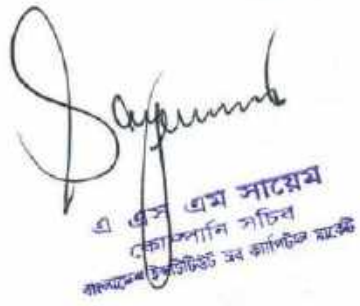 Sayeem
এ এস এম সায়েম
কোম্পানি সচিব
বাংলাদেশ ইন্সটিটিউট অব ক্যাপিটাল মার্কেট